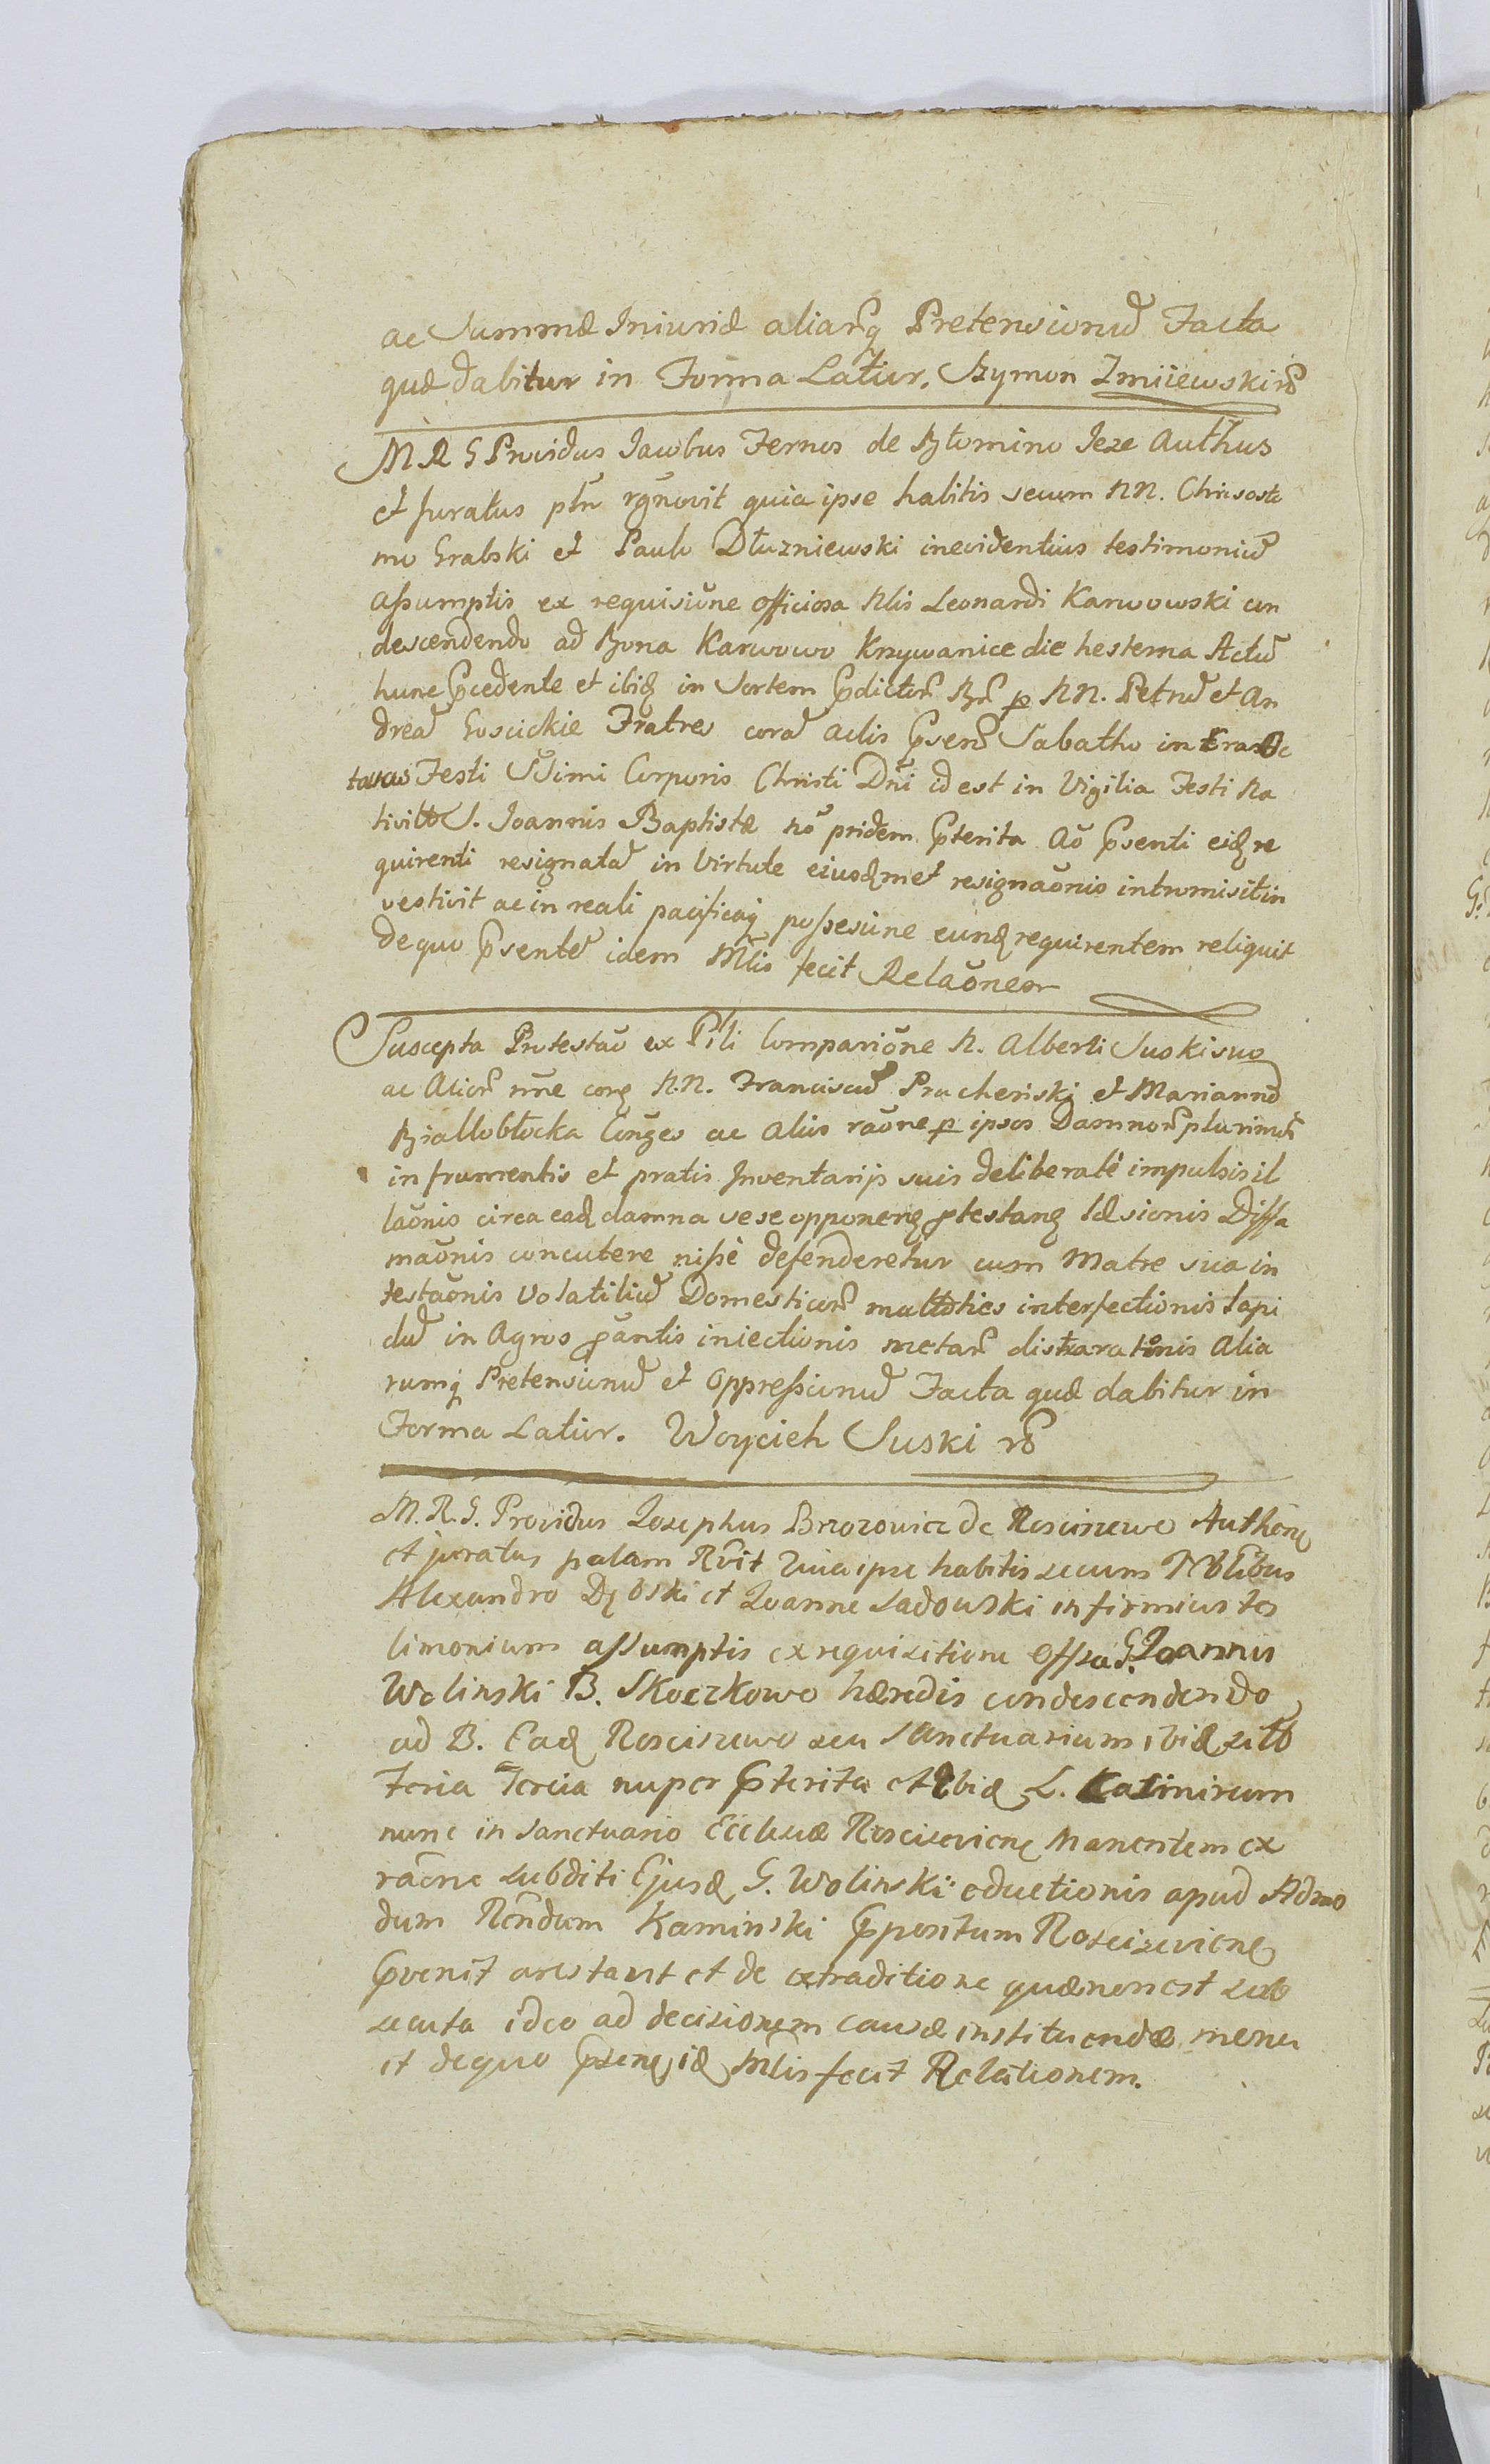 ac Summæ Iniuriæ aliarq̃ Pretensionũ Facta
quæ dabitur in Forma Latiur. Szymon Zmiiewski rõ
M R G Providus Iacobus Fernos de Błomino Jeze Authus
et Juratus ptñ rgñovit quia ipse habitis secum NN. Chrisosto
mo Grabski et Paulo Dłuzniewski inevidentius testimoniũ
assumptis ex requisiõne officiosa Nlis Leonardi Karwowski con
descendendo ad Bona Karwowo Krzywanice die hesterna Actũ
hunc p̃cedente et ibiq in Sortem p̃dictor̃ Br̃ p NN. Petrũ et An
dreã Goscickie Fratres corã actis p̃sen Sabatho infra Oc
tavas Festi SSimi Corporis Christi Dñi id est in Vigilia Festi Na
tivittis S. Joannis Baptistæ nõ pridem p̃terita Aõ p̃senti eidq re
quirenti resignatã in Virtute eiusdmet resignaõnis intromisit in
vestivit ac in reali pacificaq possesiõne eundq requirentem reliquit
de quo p̃sentẽ idem Mlis fecit Relaõnem
Suscepta Protestaõ ex P̃li Compariõne N. Alberti Suski suo
ac Alior̃ nñe cong NN. Franciscũ Prucheński et Mariannã
Białłobłocka Conges ac aliis raõne p ipsos Damnor̃ plurimor̃
in frumentis et pratis Inventarijs suis deliberatè impulsis il
laõnis circa eadq damna se se opponeng p̃testang læsionis Diffa
maõnis concutere nissè defenderetur cum Matre sua in
festaõnis Volatiliũ Domesticor̃ multoties interfectionis lapi
dũ in Agros p̃antis iniectionis metar̃ distxarationis Alia
rumq Pretensionũ et Oppressionũ Facta quæ dabitur in
Forma Latiur. Woyciech Suski rõ
M. R. G. Providus Josephus Brzozowicz de Rosciszewo Autheng
et juratus palam Rvit Quia ipse habitis secum Nobilibus
Alexandro Dębski et Joanne Sadowski in firmius tes
timonium assumptis ex requisitione Offsa G. Joannis
Wolinski B. Skoczkowo hæredis condescendendo
ad B. Eadq Rosciszewo seu Sanctuarium ibidq sitto
Feria Tercia nuper p̃terita et Ibidq L. Casimirum
nunc in Sanctuario Ecclesiæ Rosciszevieng Manentem ex
raõne subditi Ejusdq G. Wolinski eductionis apud Admo
dum Rñdum Kaminski p̃positum Rosciszevieng
p̃venit arestavit et de extraditione quæ non est sub
secuta ideo ad decisionem causæ instituendæ monu
it de quo p̃seng idq Mlis fecit Relationem.